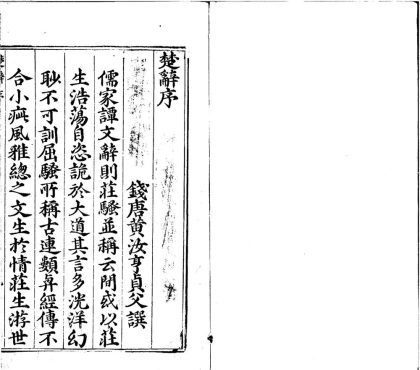 楚辭序
錢唐黃汝亨貞父譔
儒家譚文辭則莊騷並稱云間或以莊
生浩蕩自恣詭於大道其言多洸洋幻
眇不可訓屈騷所稱古連類與經傳不
合小疵風雅總之文生於情莊生游世